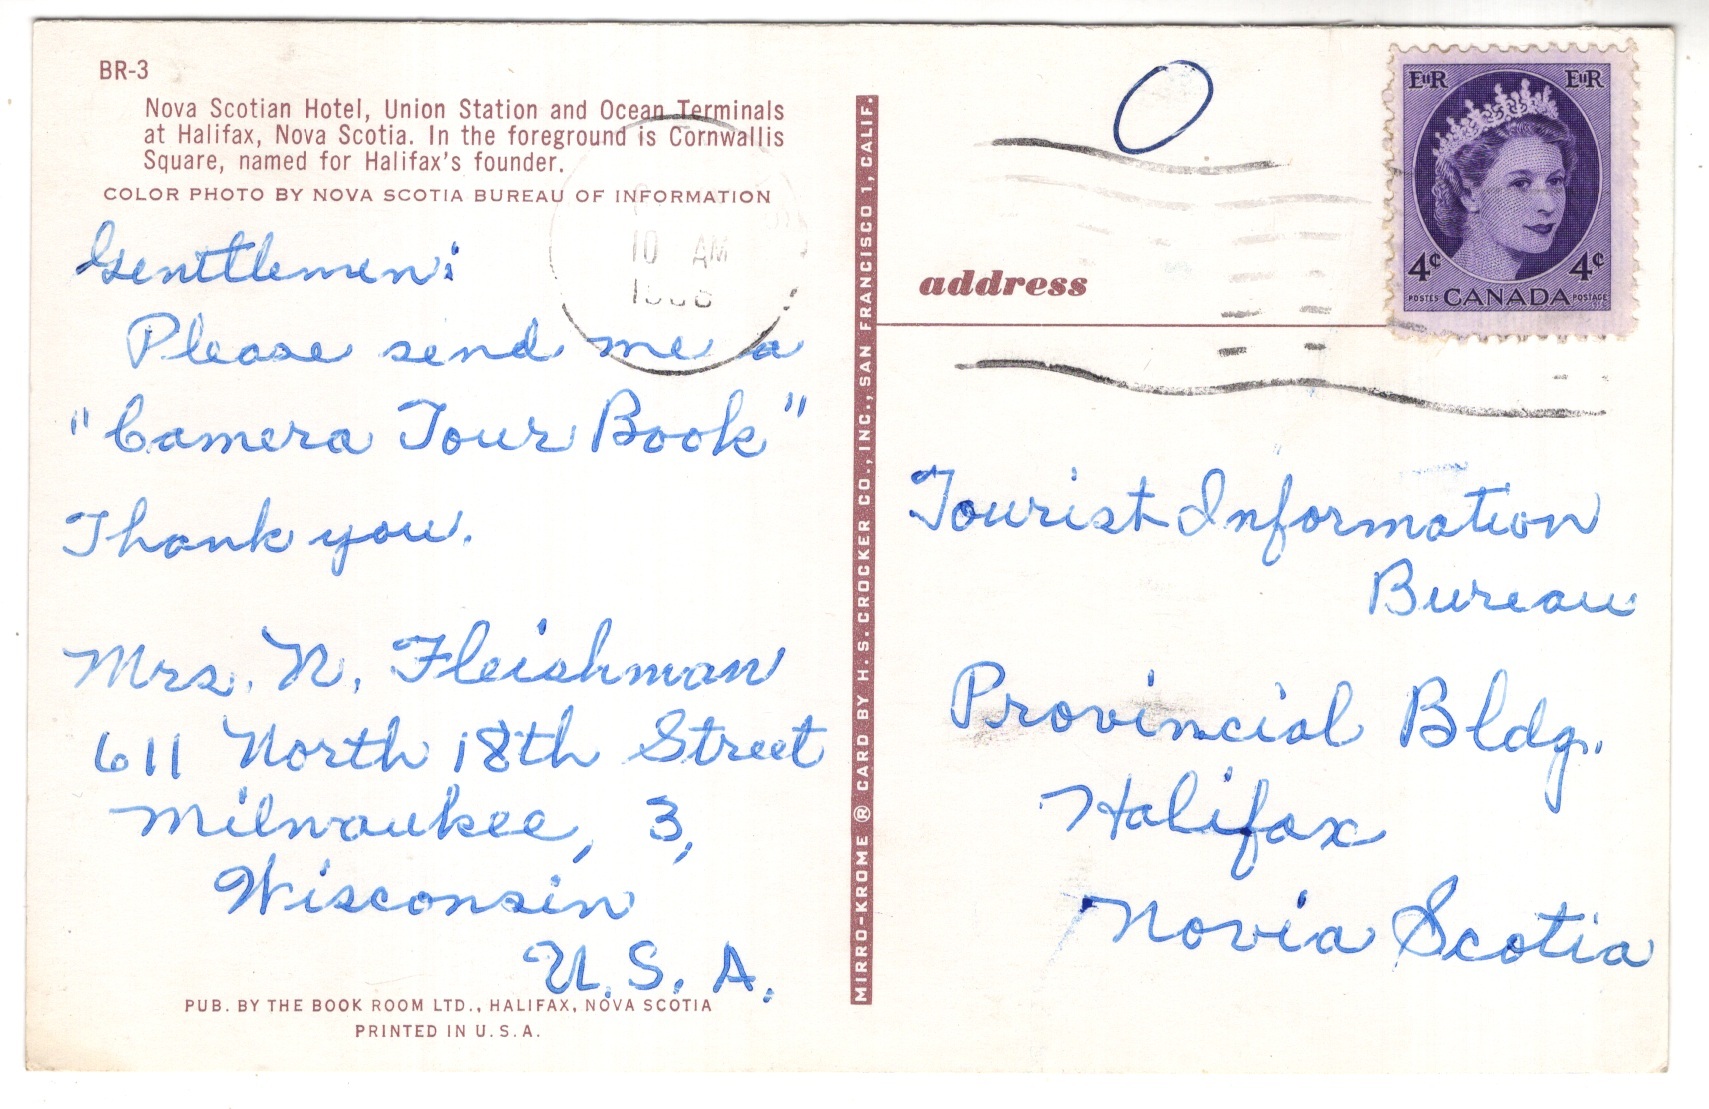 BR-3
Nova Scotian Hotel, Union Station and Ocean Terminals
at Halifax, Nova Scotia. In the foreground is Cornwallis
Square, named for Halifax's founder.
COLOR PHOTO BY NOVA SCOTIA BUREAU OF INFORMATION
10 AM
Gentlemen:
Please send me a
"Camera Tour Book"
Thank you.
Mrs. N. Fleishman
611 North 18th Street
Milwaukee, 3,
Wisconsin
U.S.A.
PUB. BY THE BOOK ROOM LTD., HALIFAX, NOVA SCOTIA
PRINTED IN U.S.A.
MIRRO-KROME ® CARD BY H.S. CROCKER CO., INC., SAN FRANCISCO 1, CALIF.
O
EIIR EIIR
4¢ 4¢
POSTES CANADA POSTAGE
address
Tourist Information
Bureau
Provincial Bldg.
Halifax
Novia Scotia